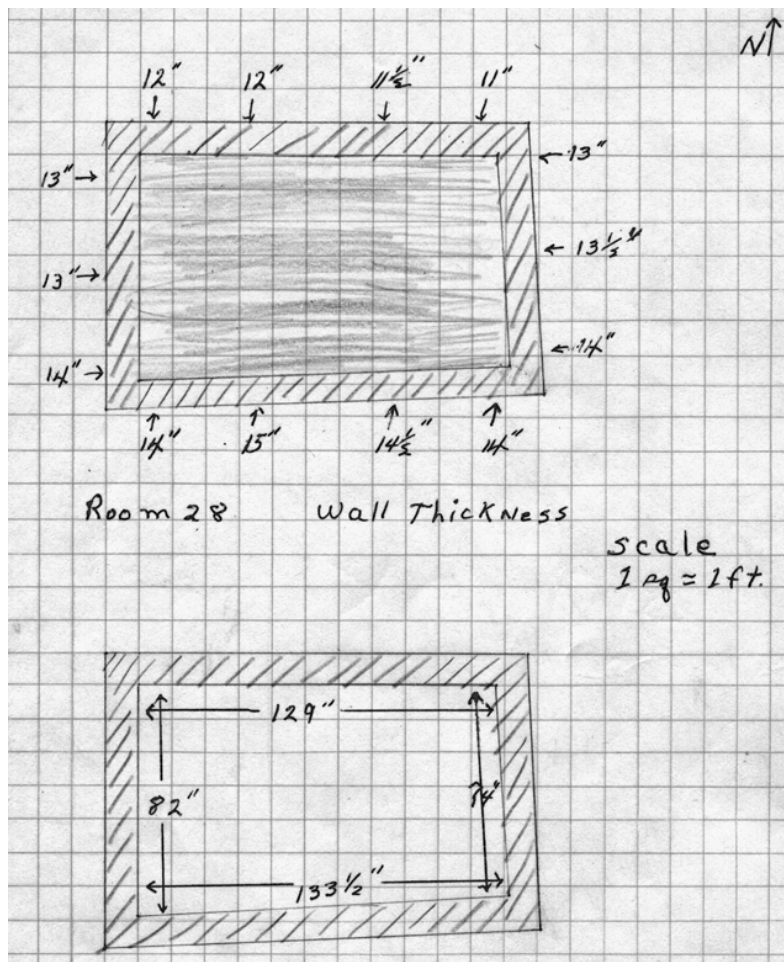 N
12" 12" 11 1/2" 11"
13" 13"
13" 13 1/2"
14" 14"
14" 15" 14 1/2" 14"
Room 28 Wall Thickness
scale
1 sq = 1 ft.
129"
82"
133 1/2"